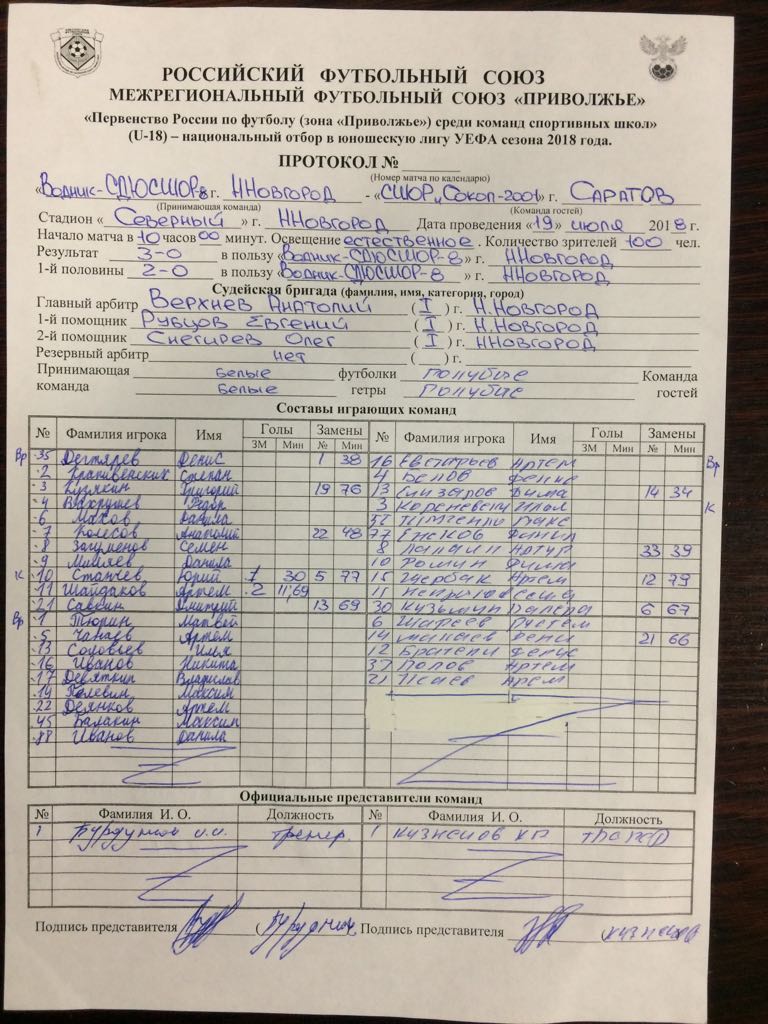 РОССИЙСКИЙ ФУТБОЛЬНЫЙ СОЮЗ
МЕЖРЕГИОНАЛЬНЫЙ ФУТБОЛЬНЫЙ СОЮЗ «ПРИВОЛЖЬЕ»
«Первенство России по футболу (зона «Приволжье») среди команд спортивных школ»
(U-18) – национальный отбор в юношескую лигу УЕФА сезона 2018 года.
ПРОТОКОЛ №
(Номер матча по календарю)
«Водник-СДЮСШОР-8 г. ННовгород - «СШОР „Сокол-2001» г. Саратов
(Принимающая команда) (Команда гостей)
Стадион «Северный» г. ННовгород Дата проведения «19» июля 2018 г.
Начало матча в 10 часов 00 минут. Освещение естественное. Количество зрителей 100 чел.
Результат 3-0 в пользу «Водник-СДЮСШОР-8» г. ННовгород
1-й половины 2-0 в пользу «Водник-СДЮСШОР-8» г. ННовгород
Судейская бригада (фамилия, имя, категория, город)
Главный арбитр Верхнев Анатолий (I) г. Н.Новгород
1-й помощник Рубцов Евгений (I) г. Н.Новгород
2-й помощник Снегирев Олег (I) г. ННовгород
Резервный арбитр нет ( ) г.
Принимающая белые футболки голубые Команда
команда белые гетры голубые гостей
Составы играющих команд
№ Фамилия игрока Имя Голы Замены № Фамилия игрока Имя Голы Замены
ЗМ Мин № Мин ЗМ Мин № Мин
Вр 35 Дегтярев Денис 1 38 16 Евстафьев Артем Вр
2 Крапивенских Степан 4 Белов
3 Кузякин Григорий 19 76 13 Елизаров Дима 14 34
4 Вахрушев Федор 3 К
6 Махов Данила
7 Колесов Анатолий 22 48 77
8 Загуменов Семен 8 Артур 33 39
9 Миляев Данила 10 Ромин
К 10 Статчев Юрий 1 30 5 77 15 Щербак Артем 12 79
11 Шайдаков Артем 2 11,69 11
21 Савкин Дмитрий 13 69 30 Кузьмин Данила 6 67
Вр 1 Тюрин Матвей 6 Рустем
5 Чанаев Артем 14 21 66
13 Соловьев Илья 12
16 Иванов Никита 37 Попов Артем
17 Девяткин Владислав 21 Исаев Арем
19 Пелевин Максим
22 Деянков Артем
45 Балакин Максим
88 Иванов Данила
Официальные представители команд
№ Фамилия И. О. Должность № Фамилия И. О. Должность
1 тренер 1 Кузнецов тренер
Подпись представителя Подпись представителя